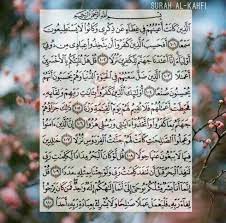 SURAH AL-KAHFI
بِسْمِ اللَّهِ الرَّحْمَٰنِ الرَّحِيمِ
ٱلَّذِينَ كَانَتْ أَعْيُنُهُمْ فِى غِطَآءٍ عَن ذِكْرِى وَكَانُوا۟ لَا يَسْتَطِيعُونَ
سَمْعًا ١٠١ أَفَحَسِبَ ٱلَّذِينَ كَفَرُوٓا۟ أَن يَتَّخِذُوا۟ عِبَادِى مِن دُونِىٓ
أَوْلِيَآءَ إِنَّآ أَعْتَدْنَا جَهَنَّمَ لِلْكَٰفِرِينَ نُزُلًا ١٠٢ قُلْ هَلْ نُنَبِّئُكُم بِٱلْأَخْسَرِينَ
أَعْمَٰلًا ١٠٣ ٱلَّذِينَ ضَلَّ سَعْيُهُمْ فِى ٱلْحَيَوٰةِ ٱلدُّنْيَا وَهُمْ يَحْسَبُونَ أَنَّهُمْ
يُحْسِنُونَ صُنْعًا ١٠٤ أُو۟لَٰٓئِكَ ٱلَّذِينَ كَفَرُوا۟ بِـَٔايَٰتِ رَبِّهِمْ وَلِقَآئِهِۦ
فَحَبِطَتْ أَعْمَٰلُهُمْ فَلَا نُقِيمُ لَهُمْ يَوْمَ ٱلْقِيَٰمَةِ وَزْنًا ١٠٥ ذَٰلِكَ جَزَآؤُهُمْ
جَهَنَّمُ بِمَا كَفَرُوا۟ وَٱتَّخَذُوٓا۟ ءَايَٰتِى وَرُسُلِى هُزُوًا ١٠٦ إِنَّ ٱلَّذِينَ ءَامَنُوا۟
وَعَمِلُوا۟ ٱلصَّٰلِحَٰتِ كَانَتْ لَهُمْ جَنَّٰتُ ٱلْفِرْدَوْسِ نُزُلًا ١٠٧
خَٰلِدِينَ فِيهَا لَا يَبْغُونَ عَنْهَا حِوَلًا ١٠٨ قُل لَّوْ كَانَ ٱلْبَحْرُ مِدَادًا
لِّكَلِمَٰتِ رَبِّى لَنَفِدَ ٱلْبَحْرُ قَبْلَ أَن تَنفَدَ كَلِمَٰتُ رَبِّى وَلَوْ جِئْنَا بِمِثْلِهِۦ مَدَدًا ١٠٩
قُلْ إِنَّمَآ أَنَا۠ بَشَرٌ مِّثْلُكُمْ يُوحَىٰٓ إِلَىَّ أَنَّمَآ إِلَٰهُكُمْ إِلَٰهٌ وَٰحِدٌ فَمَن كَانَ يَرْجُوا۟
لِقَآءَ رَبِّهِۦ فَلْيَعْمَلْ عَمَلًا صَٰلِحًا وَلَا يُشْرِكْ بِعِبَادَةِ رَبِّهِۦٓ أَحَدًۢا ١١٠